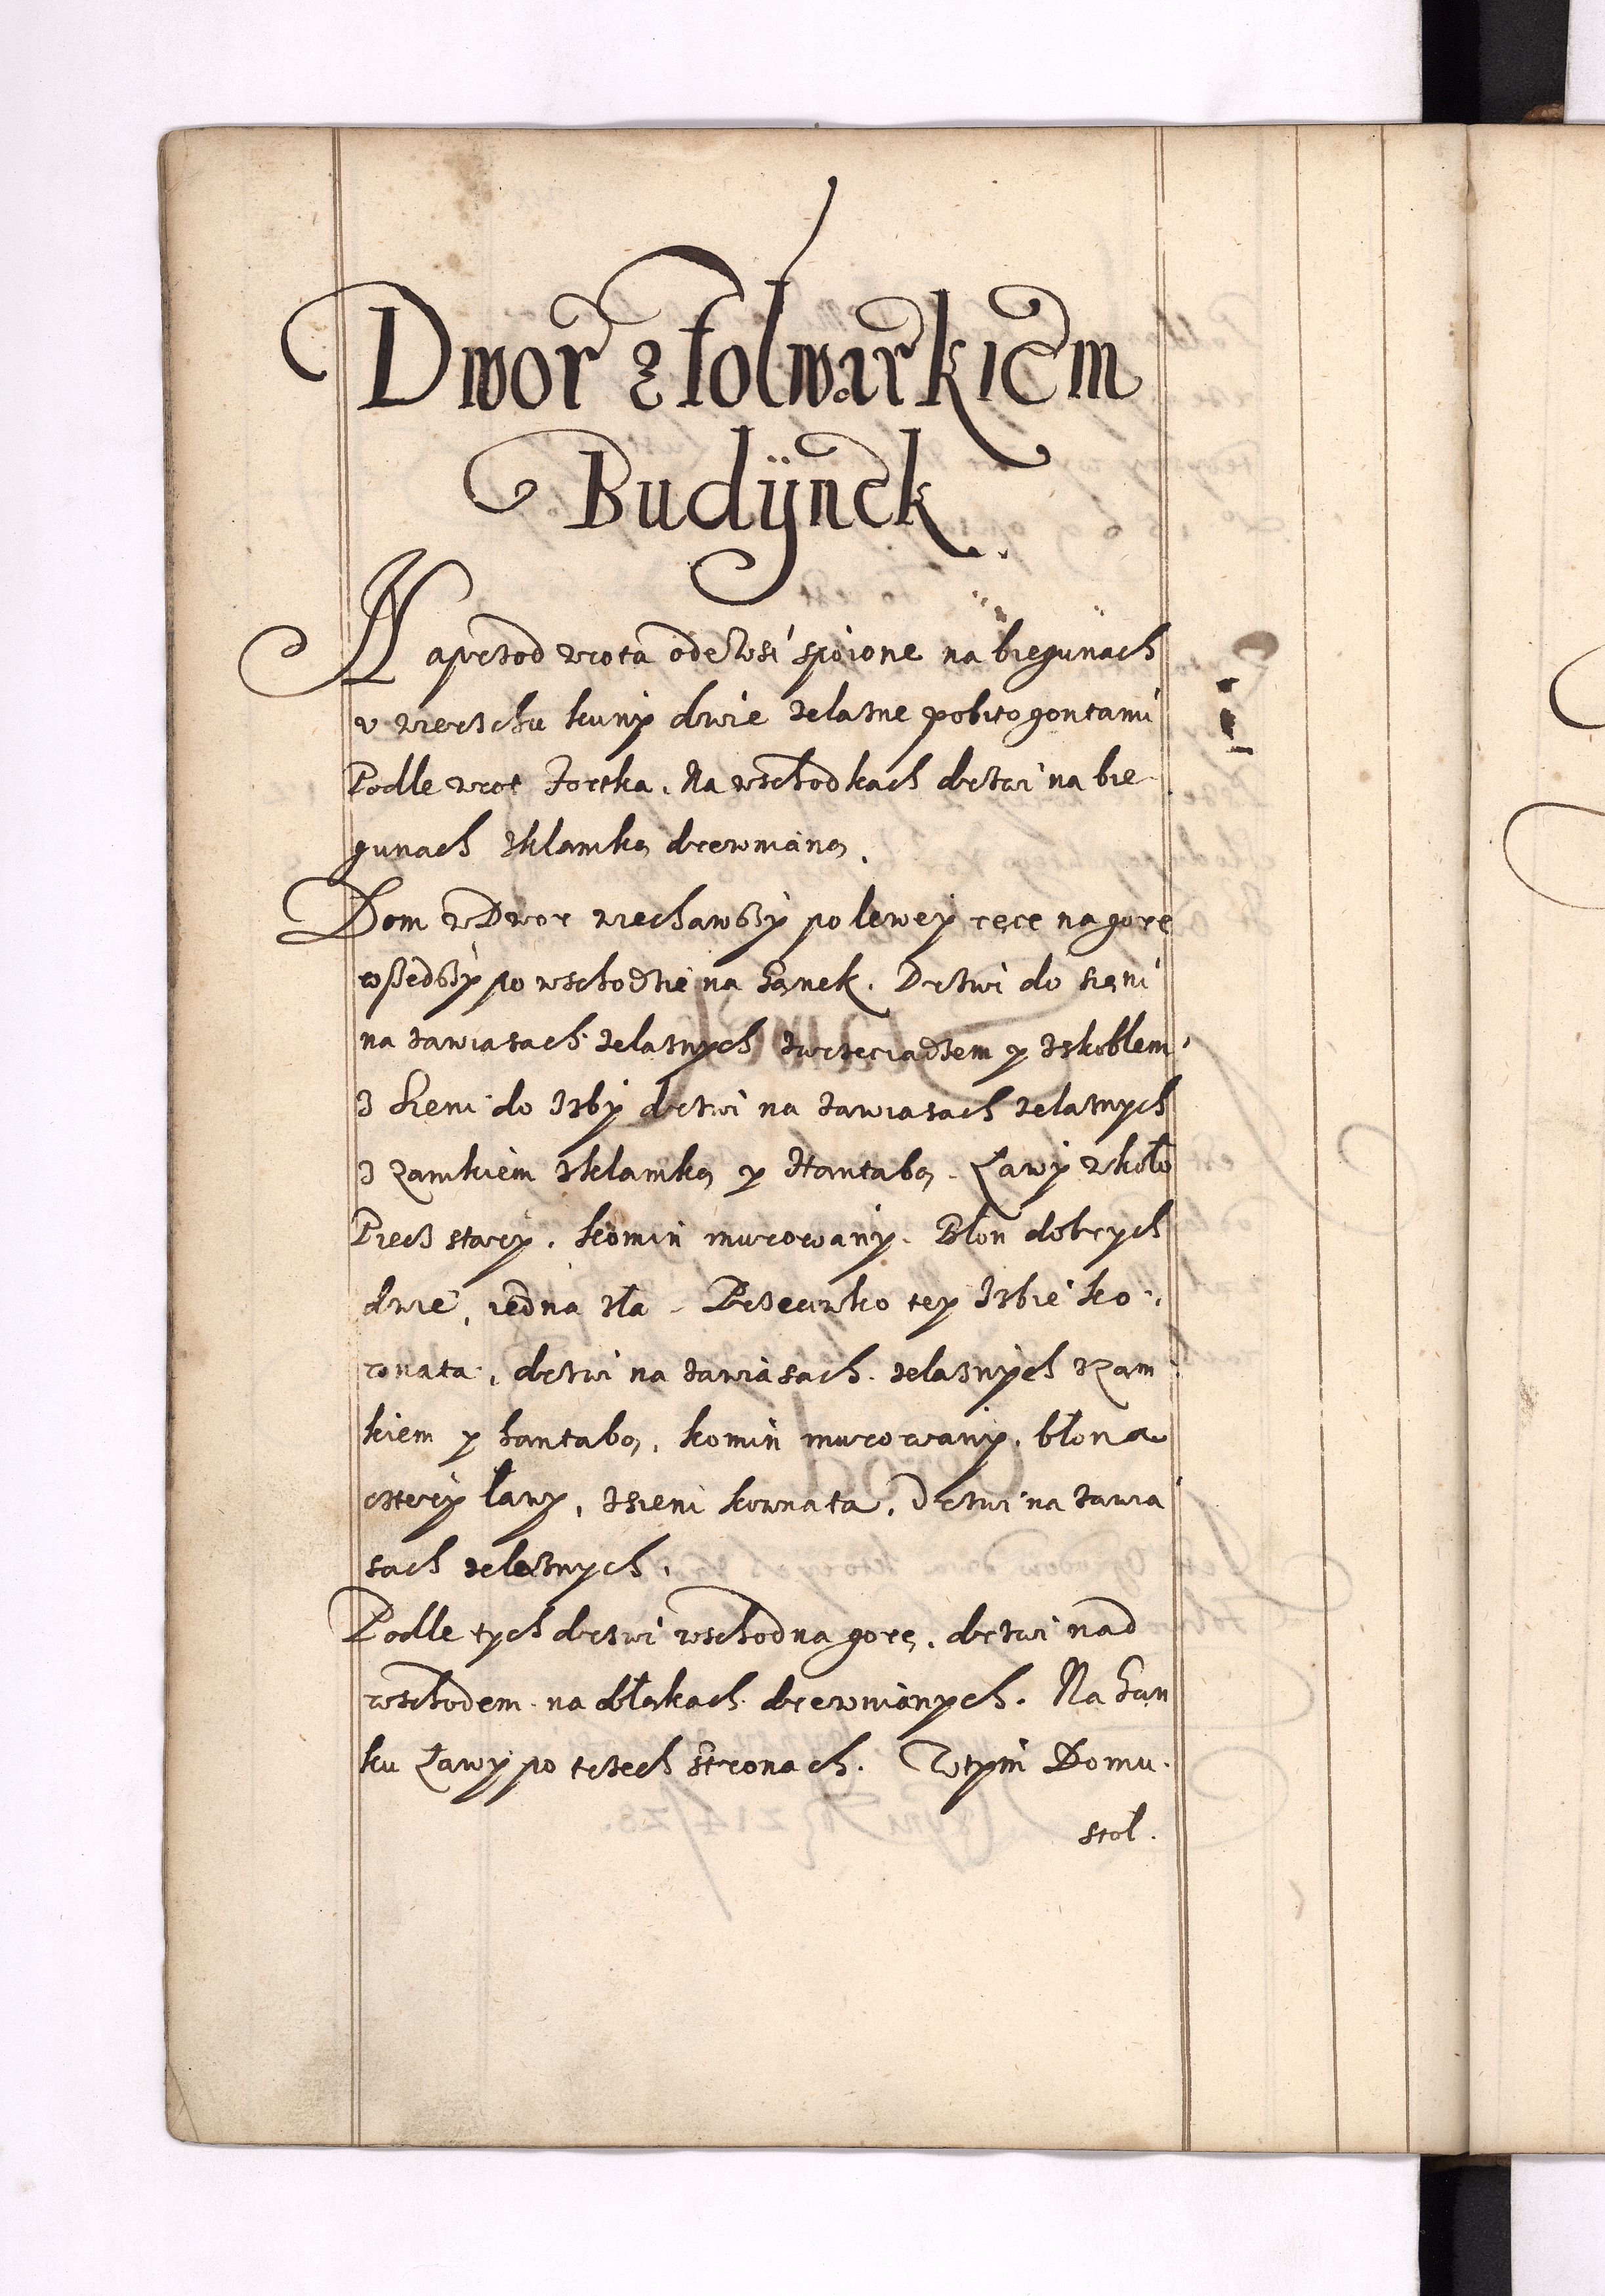 Dwor z folwarkiem
Budÿnek
Naprzod wrota ode wsi spoione na biegunach
v wierzchu kuny dwie zelazne pobito gontami
Podle wrot Fortka. Na wschodkach drzwi na bie
gunach zklamką drewnianą.
Dom w Dwor wiechawszy po lewey ręce na gorę
wszedszy po wschodzie na Ganek. Drzwi do sieni
na zawiasach zelaznych zwrzeciądzem y zskoblem
Z Sieni do Izby drzwi na zawiasach zelaznych
z Zamkiem zklamką y Hantabą. Ławy wkoło
Piecz stary. komin murowany. Błon dobrych
dwie, iedna zła. Przeciwko tey Izbie ko
monata, drzwi na zawiasach zelaznych zZam
kiem y hantabą, komin murowany. błona
cztery ławy, zsieni komnata. Drzwi na zawia
sach zelaznych.
Podle tych drzwi wschod na gorę. drzwi nad
wschodem na dłakach drewnianych. Na Gan
ku Ławy po trzech stronach. Wtym Domu
stol.